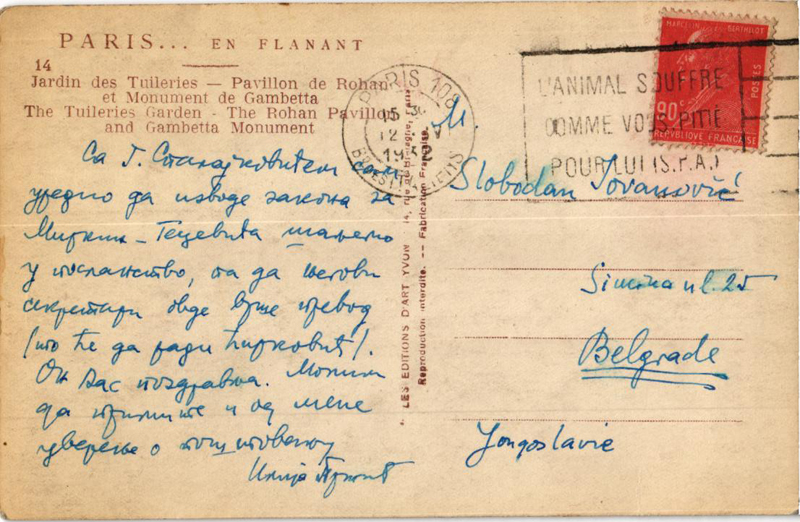 PARIS... EN FLANANT
14
Jardin des Tuileries — Pavillon de Rohan
et Monument de Gambetta
The Tuileries Garden - The Rohan Pavillon
and Gambetta Monument
Са Г. Станојковићем сам
уредио да изводе закона за
Миркин-Гецевића шаљемо
у посланство, па да његови
секретари овде врше превод
(то ће да ради Ћирковић).
Он Вас поздравља. Молим
да примите и од мене
уверење о поштовању
Илија
LES EDITIONS D'ART YVON
Reproduction interdite. -- Fabrication Française.
PARIS 108
15
12
L'ANIMAL SOUFFRE
COMME VOUS PITIÉ
POUR LUI (S.P.A.)
MARCELIN BERTHELOT
90c
POSTES
REPUBLIQUE FRANÇAISE
M.
Slobodan Jovanović
Simina ul. 25
Belgrade
Yougoslavie